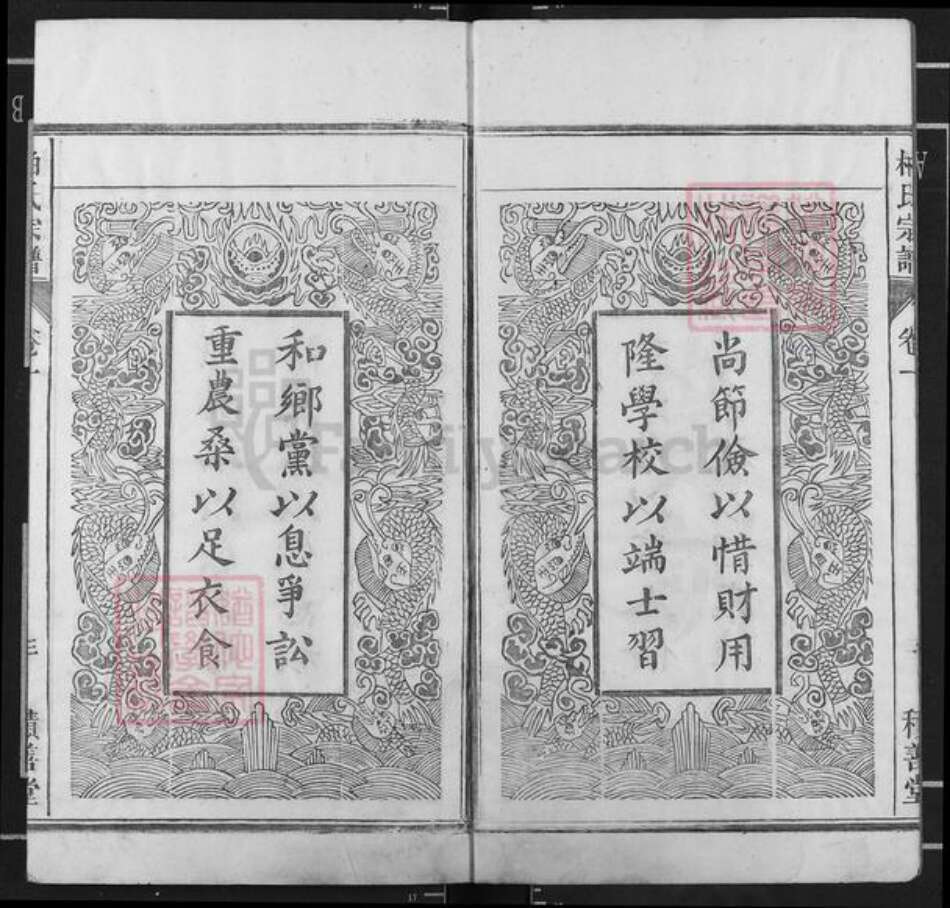 尚節儉以惜財用
隆學校以端士習
和鄉黨以息爭訟
重農桑以足衣食
氏宗譜
卷一
積善堂
氏宗譜
卷一
積善堂
FamilySearch